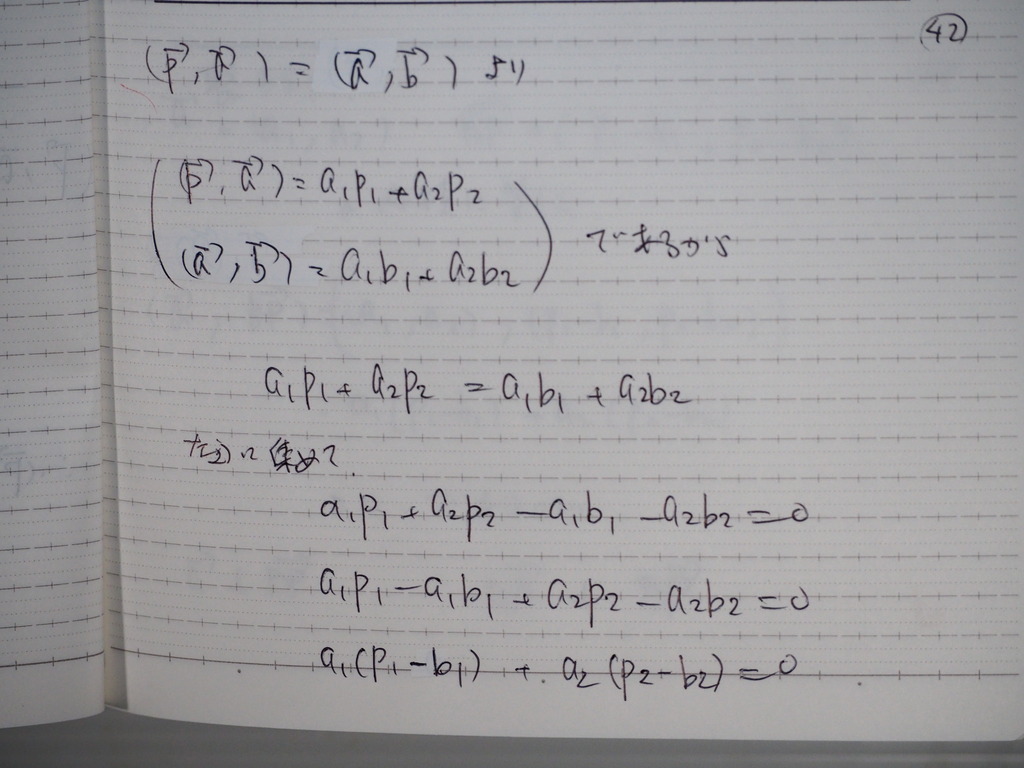 42
(p⃗, a⃗) = (a⃗, b⃗) より
(p⃗, a⃗) = a₁p₁ + a₂p₂
(a⃗, b⃗) = a₁b₁ + a₂b₂ であるから
a₁p₁ + a₂p₂ = a₁b₁ + a₂b₂
左辺に集めて
a₁p₁ + a₂p₂ − a₁b₁ − a₂b₂ = 0
a₁p₁ − a₁b₁ + a₂p₂ − a₂b₂ = 0
a₁(p₁ − b₁) + a₂(p₂ − b₂) = 0